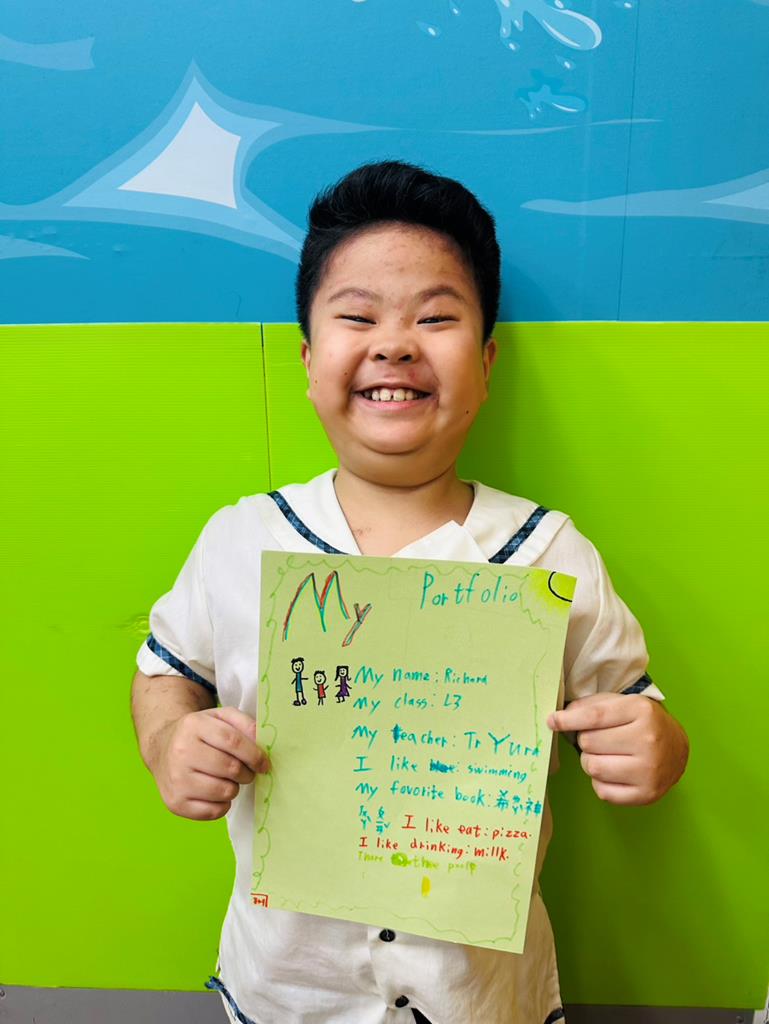 My Portfolio
My name: Richard
My class: L3
My teacher: Tr Yura
I like : swimming
My favorite book: 希腊神
I like eat: pizza.
I like drinking: millk.
There the